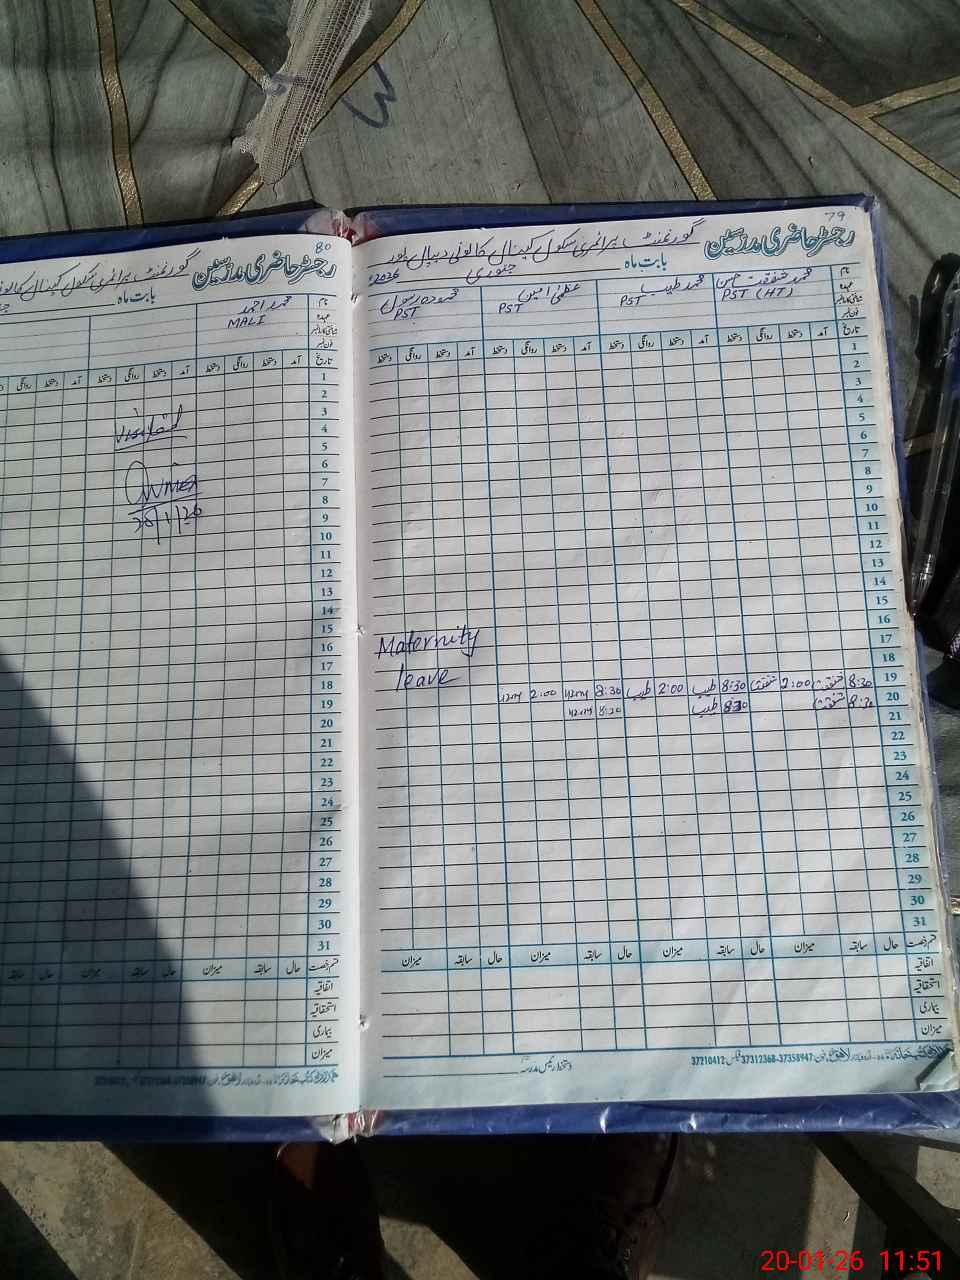 79
رجسٹر حاضری مدرسین
گورنمنٹ پرائمری سکول کینال کالونی دیپال پور
بابت ماہ جنوری 2026ء
نام محمد شفقت حسین محمد طیب عظمیٰ امین محمودہ رسول
عہدہ PST (HT) PST PST PST
شناختی کارڈ نمبر
فون نمبر
تاریخ آمد دستخط روانگی دستخط آمد دستخط روانگی دستخط آمد دستخط روانگی دستخط آمد دستخط روانگی دستخط
1
2
3
4
5
6
7
8
9
10
11
12
13
14
15
16
17
18
Maternity
leave
19 8:30 شفقت 2:00 شفقت 8:30 طیب 2:00 طیب 8:30 2:00
20 8:30 شفقت 8:30 طیب 8:30
21
22
23
24
25
26
27
28
29
30
31
قسم رخصت حال سابقہ میزان حال سابقہ میزان حال سابقہ میزان حال سابقہ میزان
اتفاقیہ
استحقاقیہ
بیماری
میزان
37210412 37312368-37358947
دستخط رئیس مدرسہ
80
رجسٹر حاضری مدرسین
گورنمنٹ پرائمری سکول کینال
بابت ماہ
نام محمد احمد
عہدہ MALI
شناختی کارڈ نمبر
فون نمبر
تاریخ آمد دستخط روانگی دستخط آمد دستخط روانگی دستخط آمد دستخط روانگی
1
2
3
4
5
6
7
8
9
10
11
12
13
14
15
16
17
18
19
20
21
22
23
24
25
26
27
28
29
30
31
Visited
20/1/26
قسم رخصت حال سابقہ میزان حال سابقہ میزان حال سابقہ
اتفاقیہ
استحقاقیہ
بیماری
میزان
20-01-26 11:51